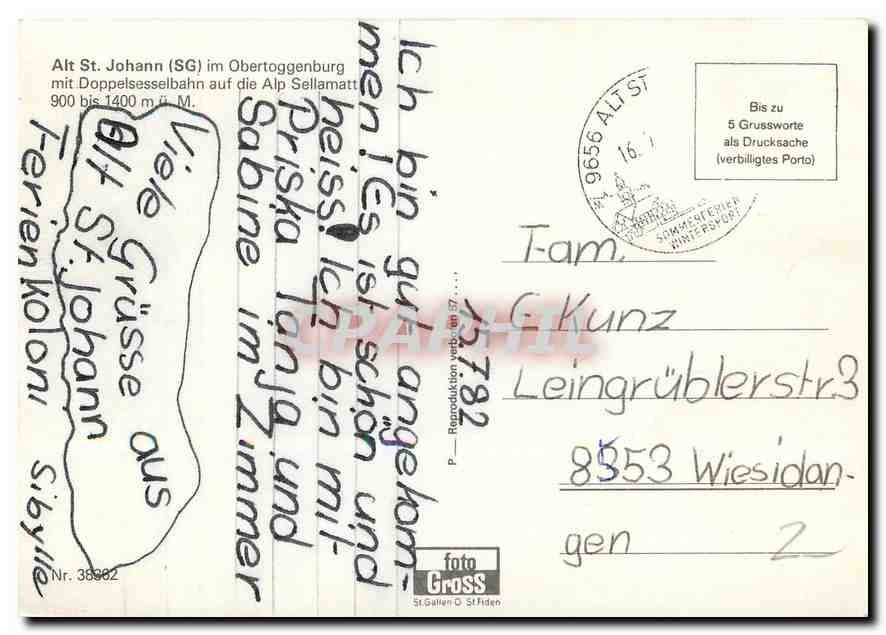 Alt St. Johann (SG) im Obertoggenburg
mit Doppelsesselbahn auf die Alp Sellamatt
900 bis 1400 m ü. M.
Ich bin gut angekom-
men! Es ist schön und
heiss! Ich bin mit
Priska Tanja und
Sabine im Zimmer
Viele Grüsse aus
Alt St. Johann
Ferienkoloni Sibylle
Nr. 38362
P Reproduktion verboten 67
15.7.82
foto
Gross
St.Gallen-O St.Fiden
9656 ALT ST
16.
SOMMERFERIEN
WINTERSPORT
Bis zu
5 Grussworte
als Drucksache
(verbilligtes Porto)
Fam.
C Kunz
Leingrüblerstr.3
8353 Wiesidan-
gen
2
CPAPHIL